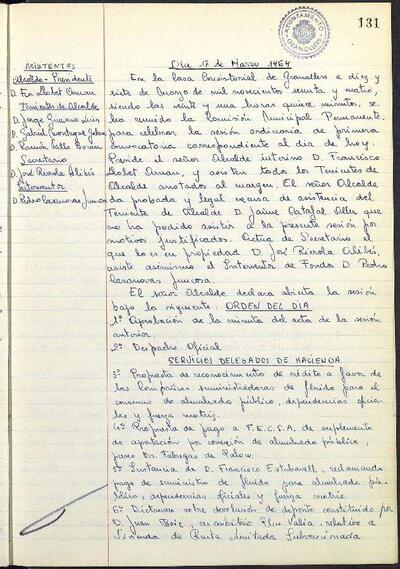 131
AYUNTAMIENTO GRANOLLERS
ASISTENTES
Alcalde-Presidente
D. Fco. Llobet Arnan
Tenientes de Alcalde
D. Jorge
D. Gabriel
D. Ramón
Secretario
D. José Rierola Alibés
Interventor
D. Pedro Casanovas Juncosa
Día 17 de Marzo 1964
En la Casa Consistorial de Granollers a diez y
siete de Marzo de mil novecientos sesenta y cuatro,
siendo las veinte y una horas quince minutos, se
ha reunido la Comisión Municipal Permanente
para celebrar la sesión ordinaria de primera
convocatoria correspondiente al día de hoy.
Preside el señor Alcalde interino D. Francisco
Llobet Arnan, y asisten todos los Tenientes de
Alcalde anotados al margen. El señor Alcalde
da probada y legal excusa de asistencia del
Teniente de Alcalde D. Jaime Catafal Oller que
no ha podido asistir a la presente sesión por
motivos justificados. Actua de Secretario el
que lo es en propiedad D. José Rierola Alibés,
asiste asimismo el Interventor de Fondos D. Pedro
Casanovas Juncosa.
El señor Alcalde declara abierta la sesión
bajo la siguiente ORDEN DEL DÍA
1º Aprobación de la minuta del acta de la sesión
anterior.
2º Despacho Oficial
SERVICIOS DELEGADOS DE HACIENDA
3º Propuesta de reconocimiento de crédito a favor de
las Compañias suministradoras de fluido para el
consumo de alumbrado público, dependencias oficia-
les y fuerza motriz.
4º Propuesta de pago a F.E.C.S.A. de suplemento
de aportación por conexión de alumbrado público,
paseo Dr. Fábregas de Palou.
5º Instancia de D. Francisco Estabanell, reclamando
pago de suministro de fluido para alumbrado pú-
blico, dependencias oficiales y fuerza motriz.
6º Dictamen sobre devolución de deposito constituido por
D. Juan en arbitrio Plus Valia, relativo a
Vivienda de Renta Limitada Subvencionada